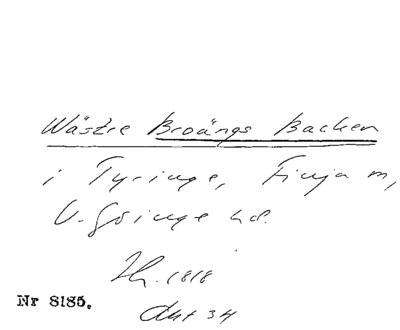 Wästre Broängs Backen
i Tyringe, Finja sn,
V. Göinge hd.
1818
Nr 8185.
Akt 34